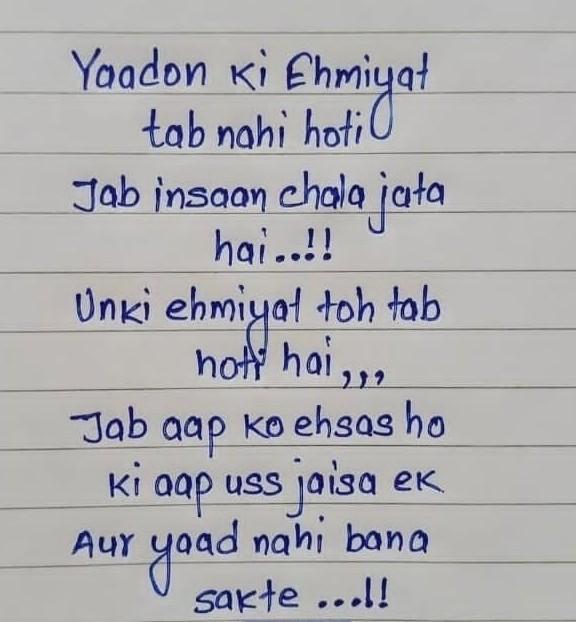 Yaadon ki Ehmiyat
tab nahi hoti
Jab insaan chala jata
hai..!!
Unki ehmiyat toh tab
hoti hai,,,
Jab aap ko ehsas ho
ki aap uss jaisa ek
Aur yaad nahi bana
sakte ...!!